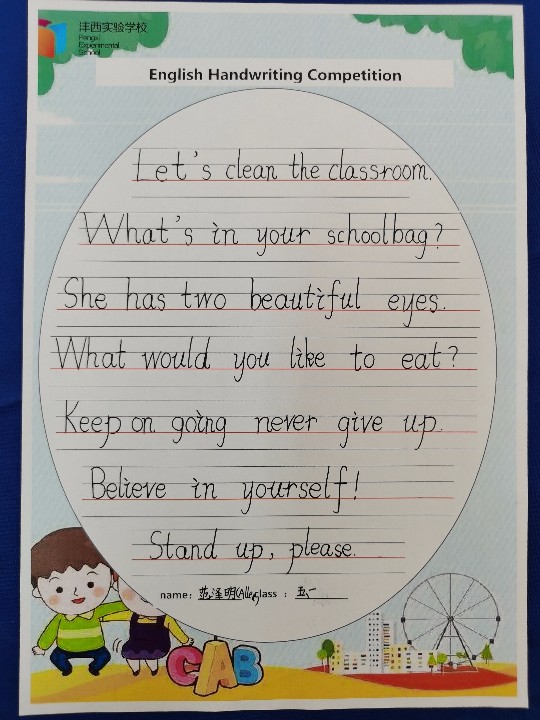 沣西实验学校
Fengxi
Experimental
School
English Handwriting Competition
Let's clean the classroom.
What's in your schoolbag?
She has two beautiful eyes.
What would you like to eat?
Keep on going never give up.
Believe in yourself!
Stand up, please.
name: 范泽明 class :
CAB